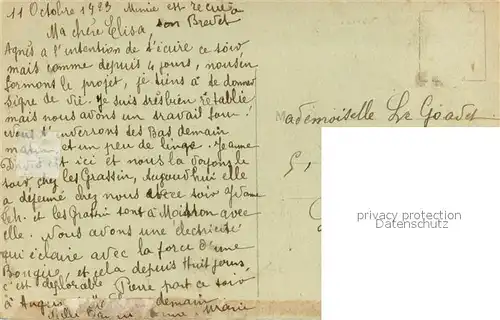 11 Octobre 1923 Minie est recue à
son Brevet
Ma chère Elisa,
Agnès a l'intention de t'écrire ce soir
mais comme depuis 4 jours, nous en
formons le projet, je tiens à te donner
signe de vie. Je suis très bien rétablie
mais nous avons un travail fou.
Vous enverrons des Bas demain
matin et un peu de linge. Jeanne
est ici et nous la voyons le
soir, chez les Grassin, Aujourd'hui elle
a déjeuné chez nous avec soir
et les Grassin sont à avec
elle. Nous avons une électricité
qui éclaire avec la force d'une
Bougie, et cela depuis Huit jours,
c'est déplorable Pierre part ce soir
à demain
Marie
Mademoiselle Le Goadet
G,
privacy protection
watermark